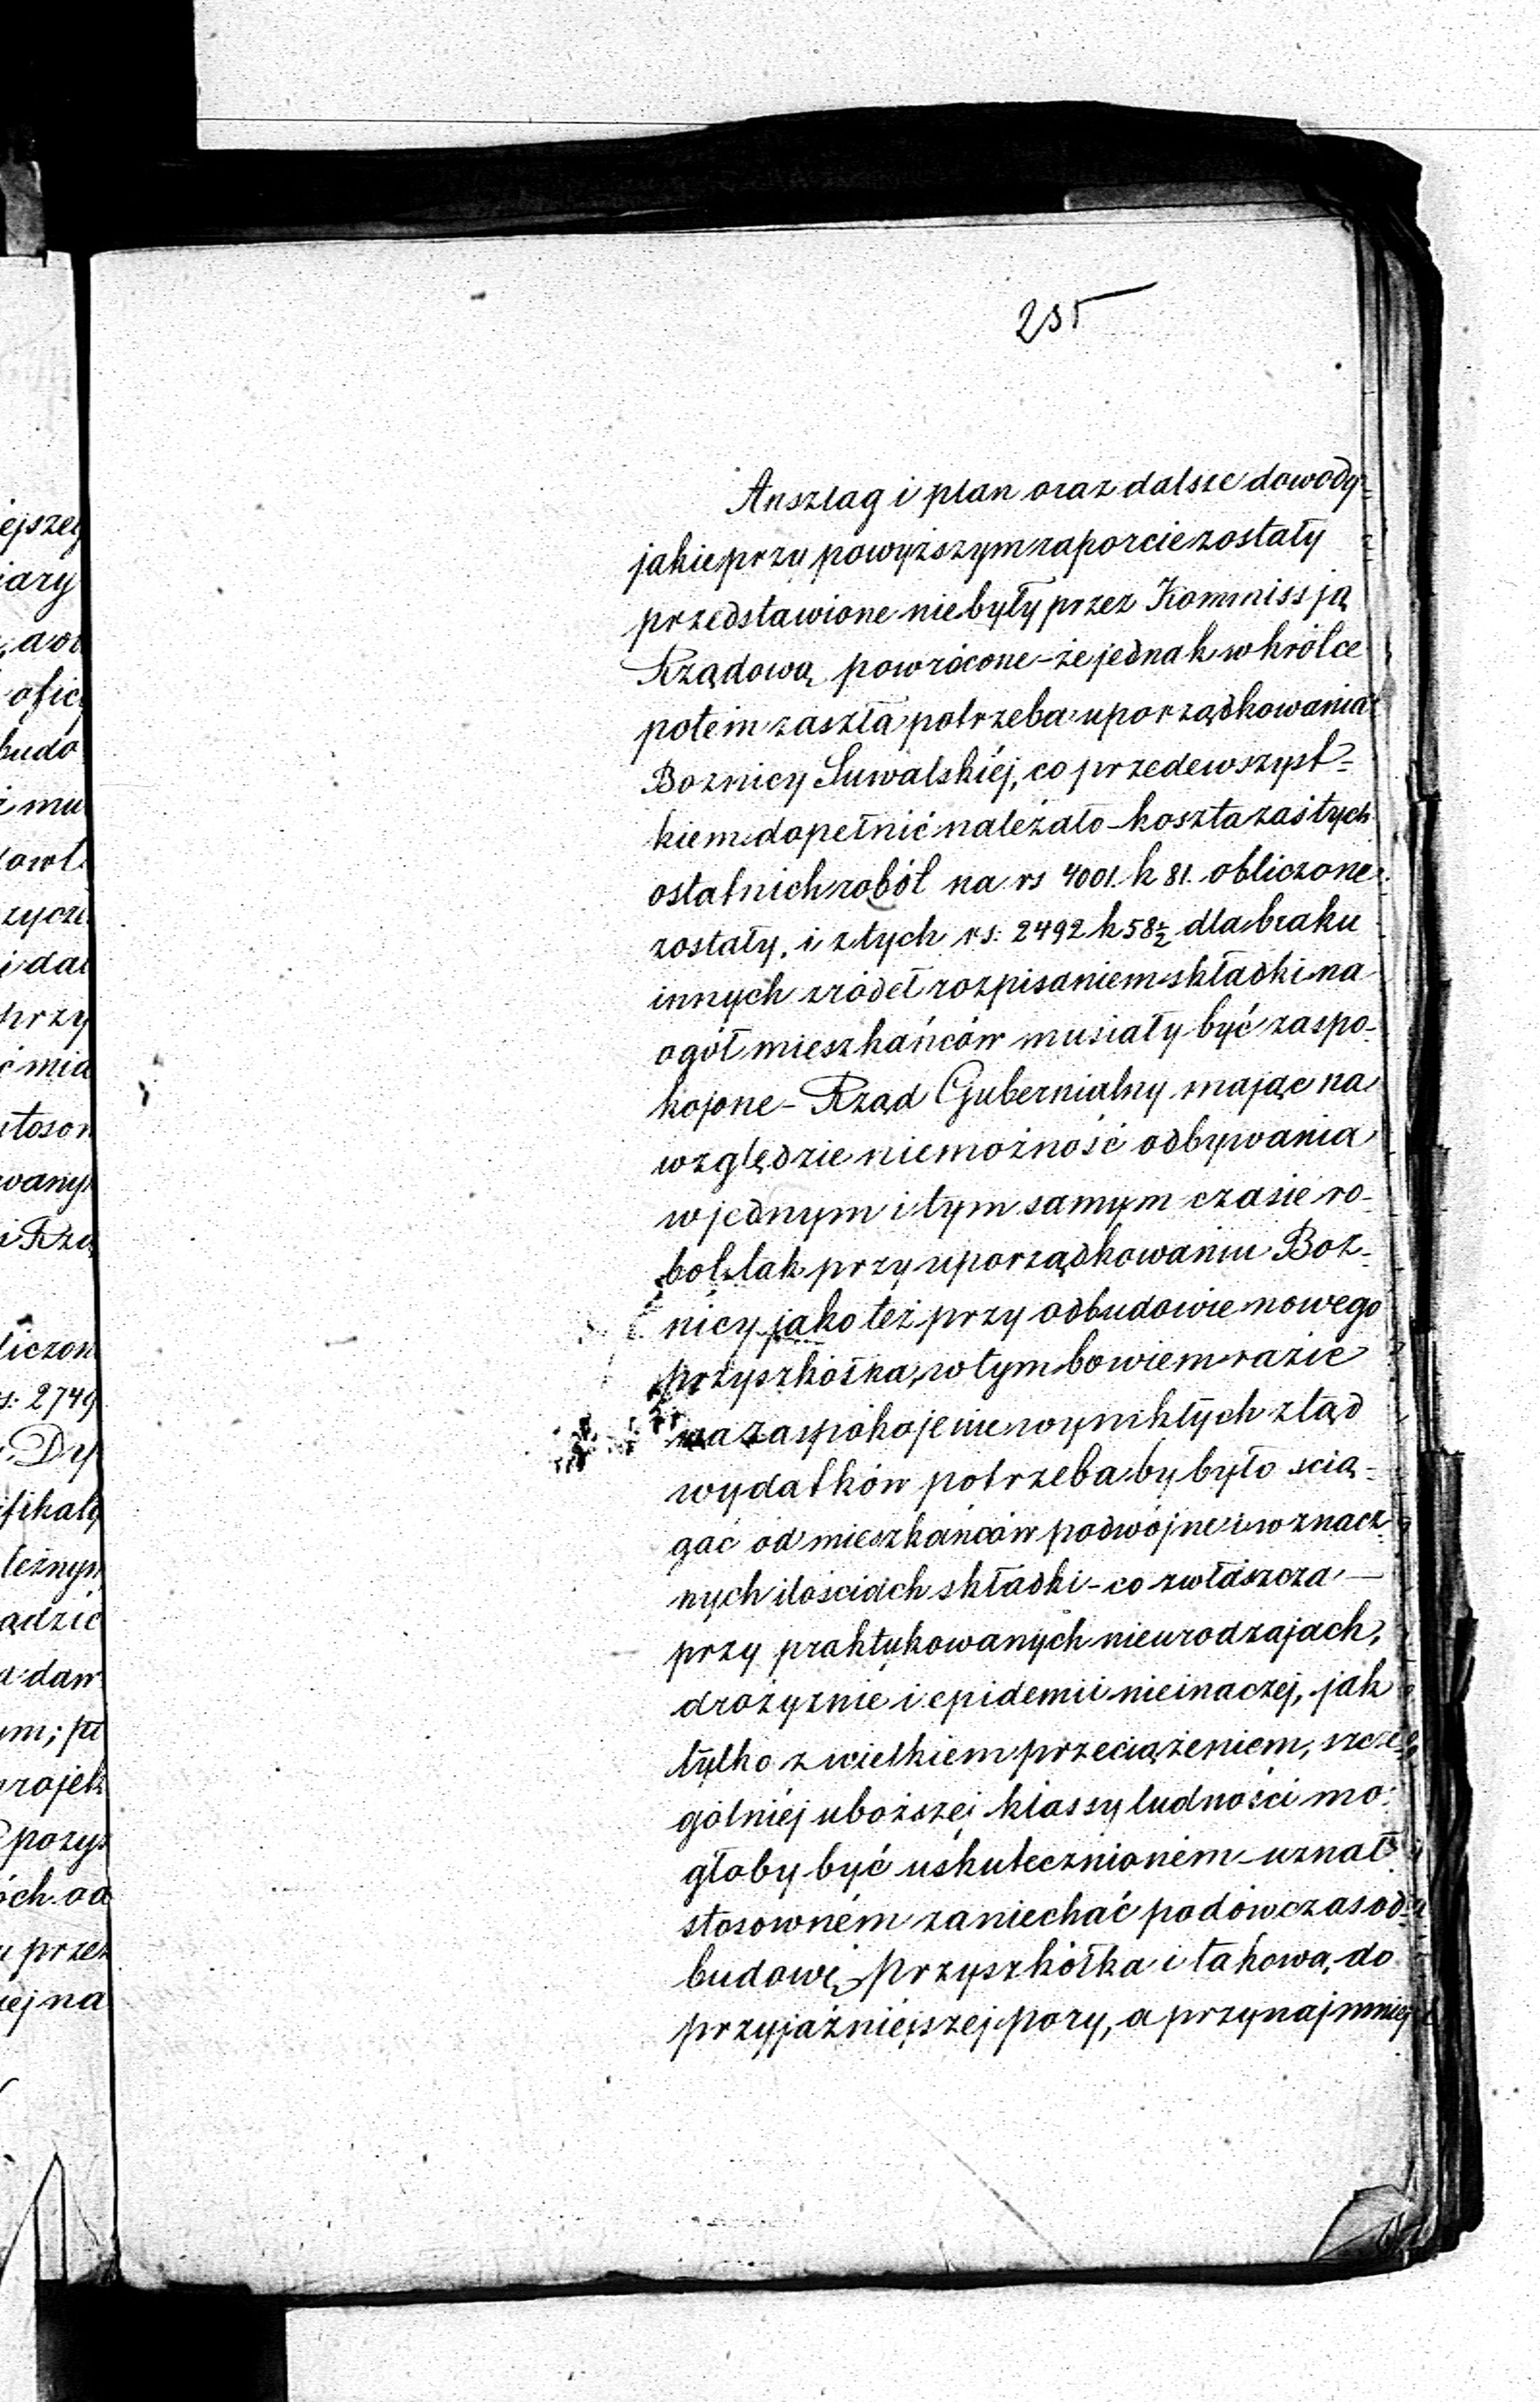 235
Anszlag i plan oraz dalsze dowody
jakie przy powyższym raporcie zostały
przedstawione nie były przez Kommissją
Rządową powrócone – że jednak w krótce
potem zaszła potrzeba uporządkowania
Boznicy Suwalskiéj, co przedewszyst=
kiem dopełnić należało – koszta zaś tych
ostatnich robót na rs 4001. k 81. obliczone
zostały, i z tych rs: 2492 k 58½ dla braku
innych zródeł rozpisaniem składki na
ogół mieszkańców musiały być zaspo-
kojone – Rząd Gubernialny mając na
względzie niemożność odbywania
w jednym i tym samym czasie ro-
bót tak przy uporządkowaniu Boz-
nicy jako też przy odbudowie nowego
przyszkółka, w tym bowiem razie
na zaspokojenie wynikłych ztąd
wydatków potrzeba by było ścią-
gać od mieszkańców podwójne i w znacz
nych ilościach składki – co zwłaszcza –
przy praktykowanych nieurodzajach,
drożyznie i epidemii nieinaczej, jak
tylko z wielkiem przeciążeniem, szcze
gólniéj uboższej klassy ludności mo-
głoby być uskutecznioném – uznał
stosowném zaniechać podówczas od-
budowę przyszkółka i takową do
przyjaźniejszej pory, a przynajmniej
ejszej
iary
ofic
budo
i mu
i dal
przy
wany
i Rzą
liczon
s: 2749
Dy
fikaty
leżnym
ądzić
daw
ym; pł
rojek
pozys
óch od
przez
iej na